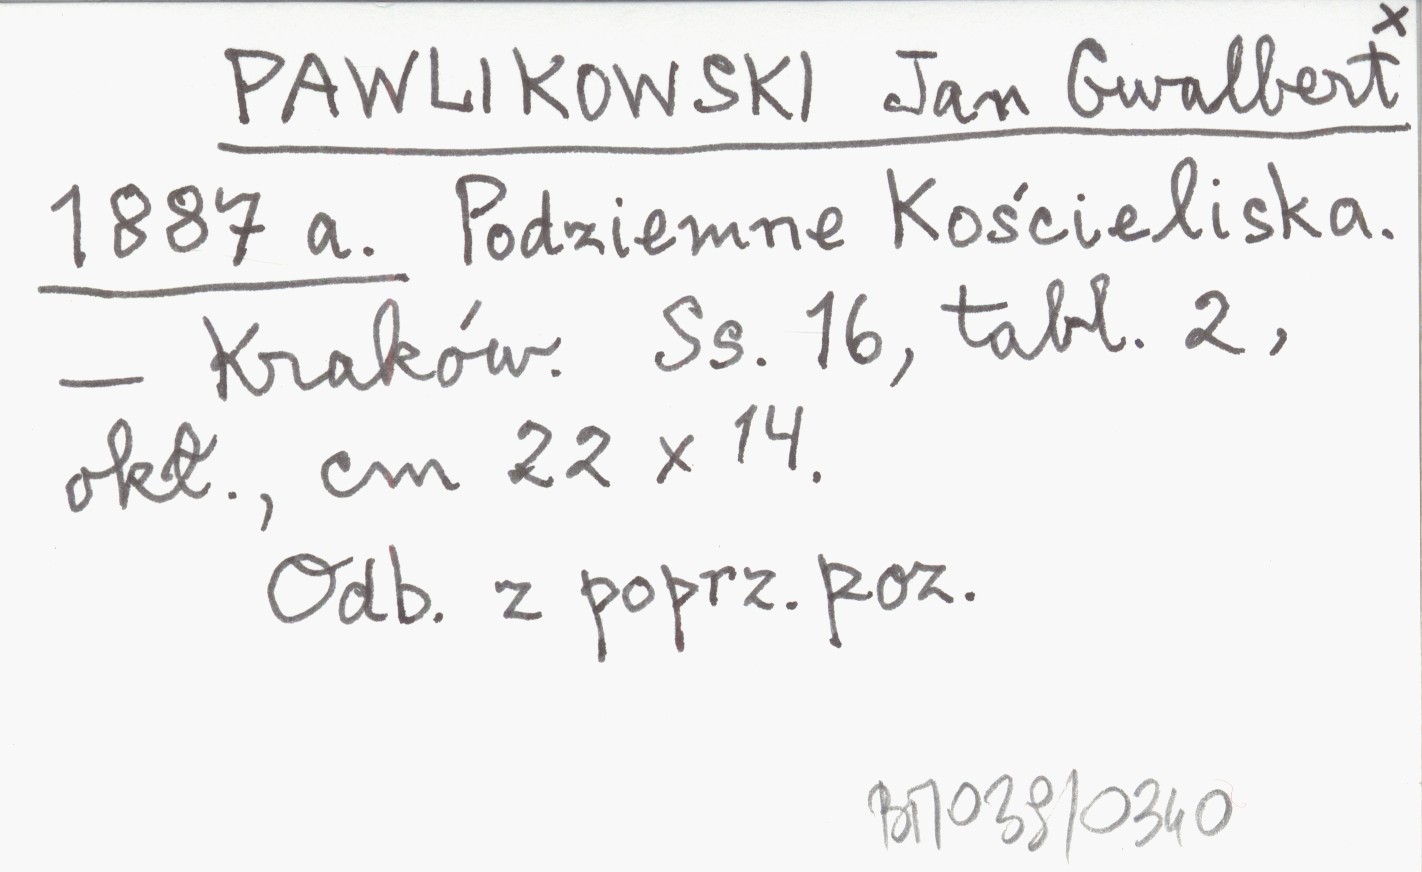 x
PAWLIKOWSKI Jan Gwalbert
1887 a. Podziemne Kościeliska.
— Kraków. Ss. 16, tabl. 2,
okł., cm 22 x 14.
Odb. z poprz. poz.